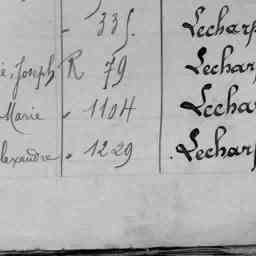 335. Lecharp
Joseph R 79 Lecharp
Marie 1104 Lechar
lexandre 1229 Lecharp